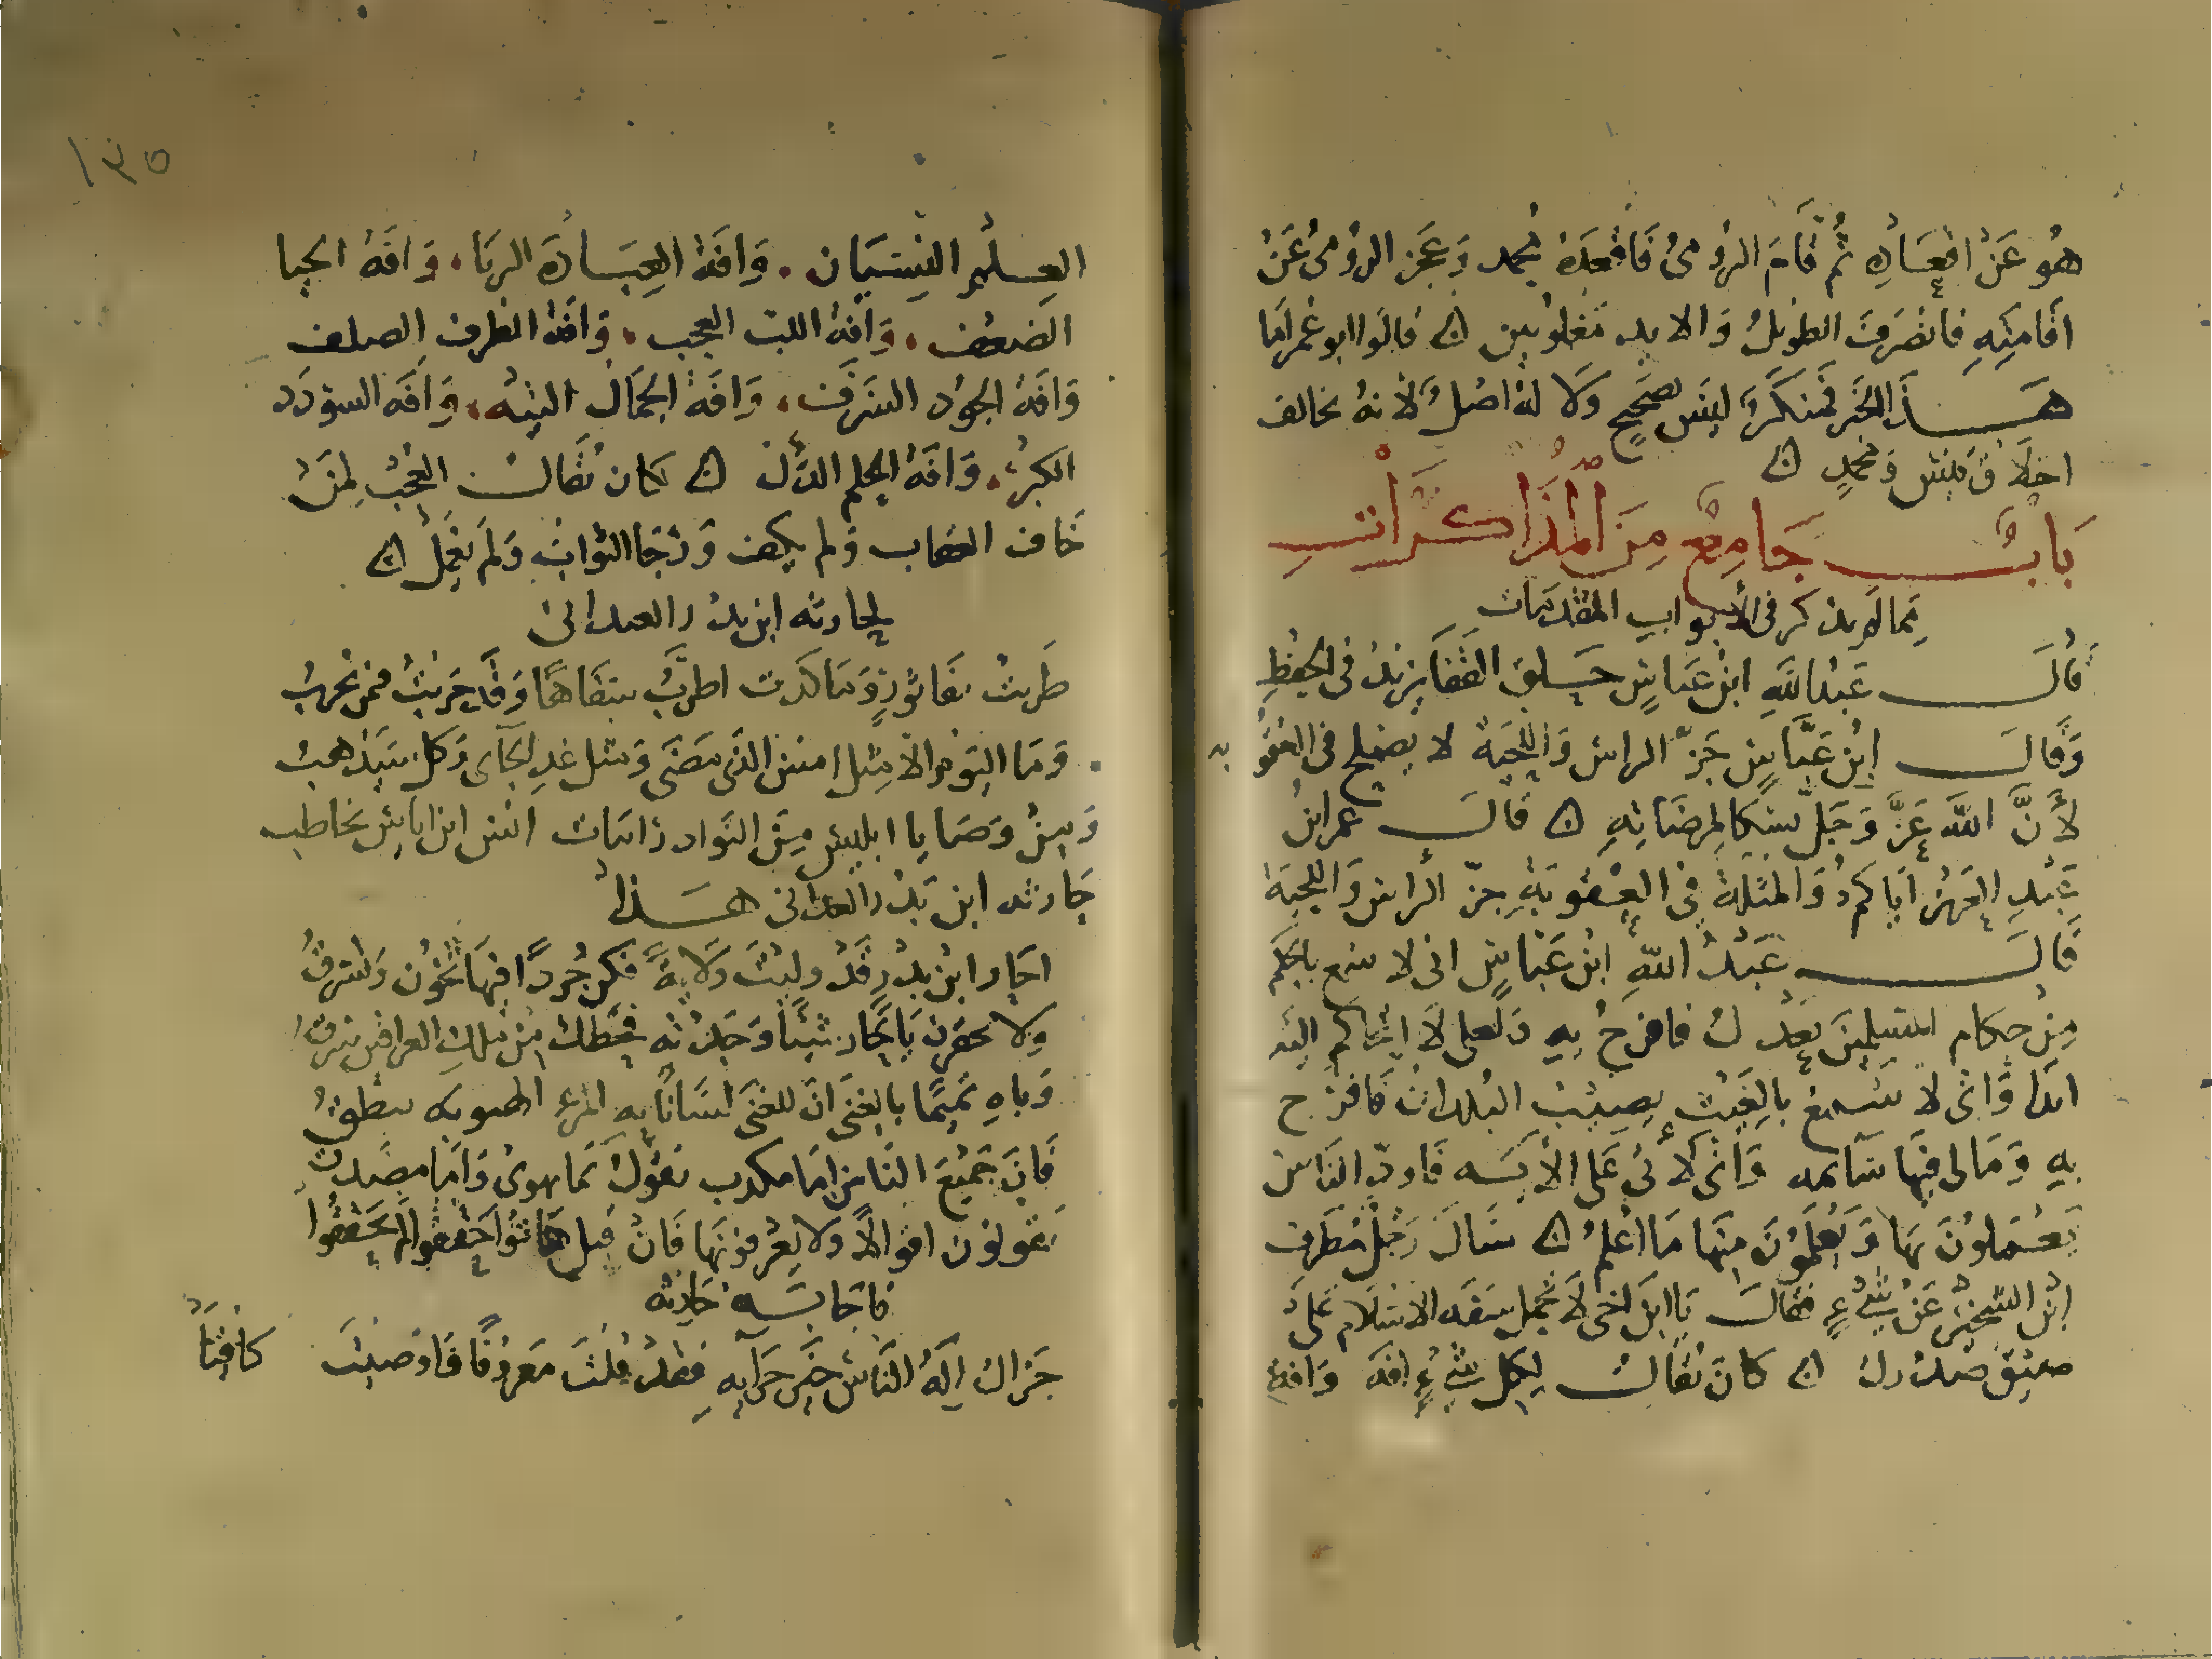 هُو عَنْ اقعَادِهِ ثُم قَامَ الرُومىُ فَاقعَدَهُ مُحمد وَعَجَز الرُومىُ عَنْ
اقَامَتِهِ فانصَرَفَ الطَويلُ وَالايد مَغلوبين ۞ قالوا ابو عُمر اَمَا
هَــذَا الخَبر فمنكَر لَيسَ بصَحيحٍ وَلَا لهُ اصْل لانهُ يخالف
اخلَاق قيس وَمحمدٍ ۞
بَابٌ جَامِعٌ مِنَ المُذَاكَرَاتِ
مِما لَم يذكر فى الأبواب المقدمات
قَالَ عَبْدُ اللَّهِ ابنُ عَباسٍ حَلقُ القَفَا يَزيدُ فى الحِفْظِ
وَقَالَ ابْن عَبَّاسٍ جَزّ الراس وَاللِحْيَة لا يصْلح فى العُقُو به
لأَنَّ اللَّه عَزَّ وَجَل جَعَلَ نُسُكا لمرضَاتِهِ ۞ قَالَ عمر ابنُ
عَبْدِ العَزيز اياكم وَالمثلَة فى العُقوبَةِ جزّ الراس وَاللحيَة
قَالَ عَبْدُ اللَّهِ ابْن عَبَّاسٍ انى لا سمع بالحكم
مِنْ حكام المسلمِينَ يَعْدل فافرحُ بِهِ وَلعلى لَا احاكم اليه
ابَدا وَانى لا سْمَع بالغَيْث يصيبُ البُلدان فَافرح
بهِ وَمَا لى فيهَا سَايمه وَانى لاتى عَلى الأيَه فَاودّ الناس
يَعْمَلونَ بهَا وَيَعْلَمُونَ مِنْهَا مَا اعْلمُ ۞ سَال رَجُل مُطَرف
ابْن الشِخير عَنْ شَىْءٍ فقَالَ يَا ابنَ اخى لَا تحمل سَعَه الاسْلَام عَلَى
ضيق صدْرك ۞ كانَ يُقالُ لِكل شىْءٍ افة وَافة
العِلْم النِسْيَان . وَافَة العِبَادَة الريَا . وَافَة الحيا
الضعْف . وَافَة اللب العجب . وَافَة الظرف الصلف
وَافَة الجود السَرَف . وَافَة الجَمَال التيه . وَافَه السودَد
الكبر . وَافَة الحلم الذل ۞ كان يُقَالُ العَجَبُ لِمَنْ
خَافَ العقاب وَلم يكف وَرَجَا الثواب وَلَم يَعْمَل ۞
لحارثه ابن بدر العدانى
طَربتُ بفَاثورٍ وَمَا كدت اطرَبُ سفَاهًا وَقَد جَربتُ فمن يجربُ
وَمَا اليَومُ الا مِثل امس الذى مَضَى وَمثل غدِ الجآى وَكل سَيَذهبُ
وَمِنْ وَصَايا ابليس مِنَ النَوادر ابيات انس ابن ايَاس يخاطب
حَارثه ابن بَدْر العدانى هَــذا
احَار ابنُ بدرٍ قَدْ وليتَ ولَايةً فكن جُرذًا فيهَا تخُون وَتسْرقُ
وَلا تحقرن يَا حَار شيْئًا وَجَدْته فَحَظك مِنْ مُلك العراقين سُرقُ
وَباهِ تَميمًا بالغِنَى انَ للغنَى لسَانًا به المرء الهيوبه ينطقُ
فَانَ جَمِيعَ النَاس امَا مكذب يَقُولُ بمَا يهوى وَامَا مصَدق
يَقولون اقوالًا وَلا يَعْرفونهَا فَانْ قيل هَاتُوا حَققوا لَم يُحَقِقوا
فاجَابَــه حَارثه
جَزاك اِلَهُ النَاس خَير جَزَآيهِ فَقَدْ قُلتَ مَعرُوفًا فَاوصَيتَ كافِيَا
١٣٥